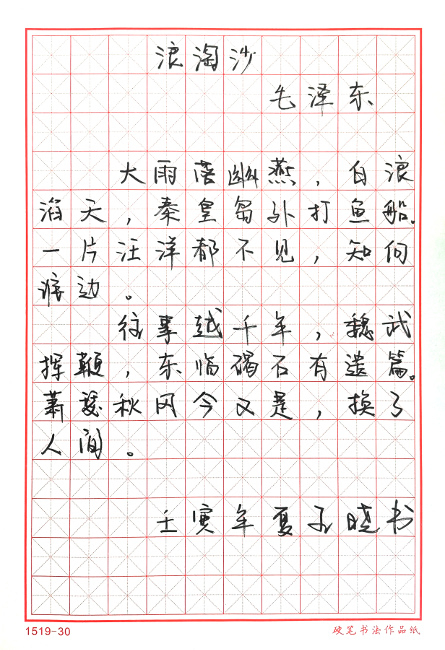 浪淘沙
毛泽东
大雨落幽燕，白浪
滔天，秦皇岛外打鱼船。
一片汪洋都不见，知向
谁边。
往事越千年，魏武
挥鞭，东临碣石有遗篇。
萧瑟秋风今又是，换了
人间。
壬寅年夏子晓书
1519-30
硬笔书法作品纸